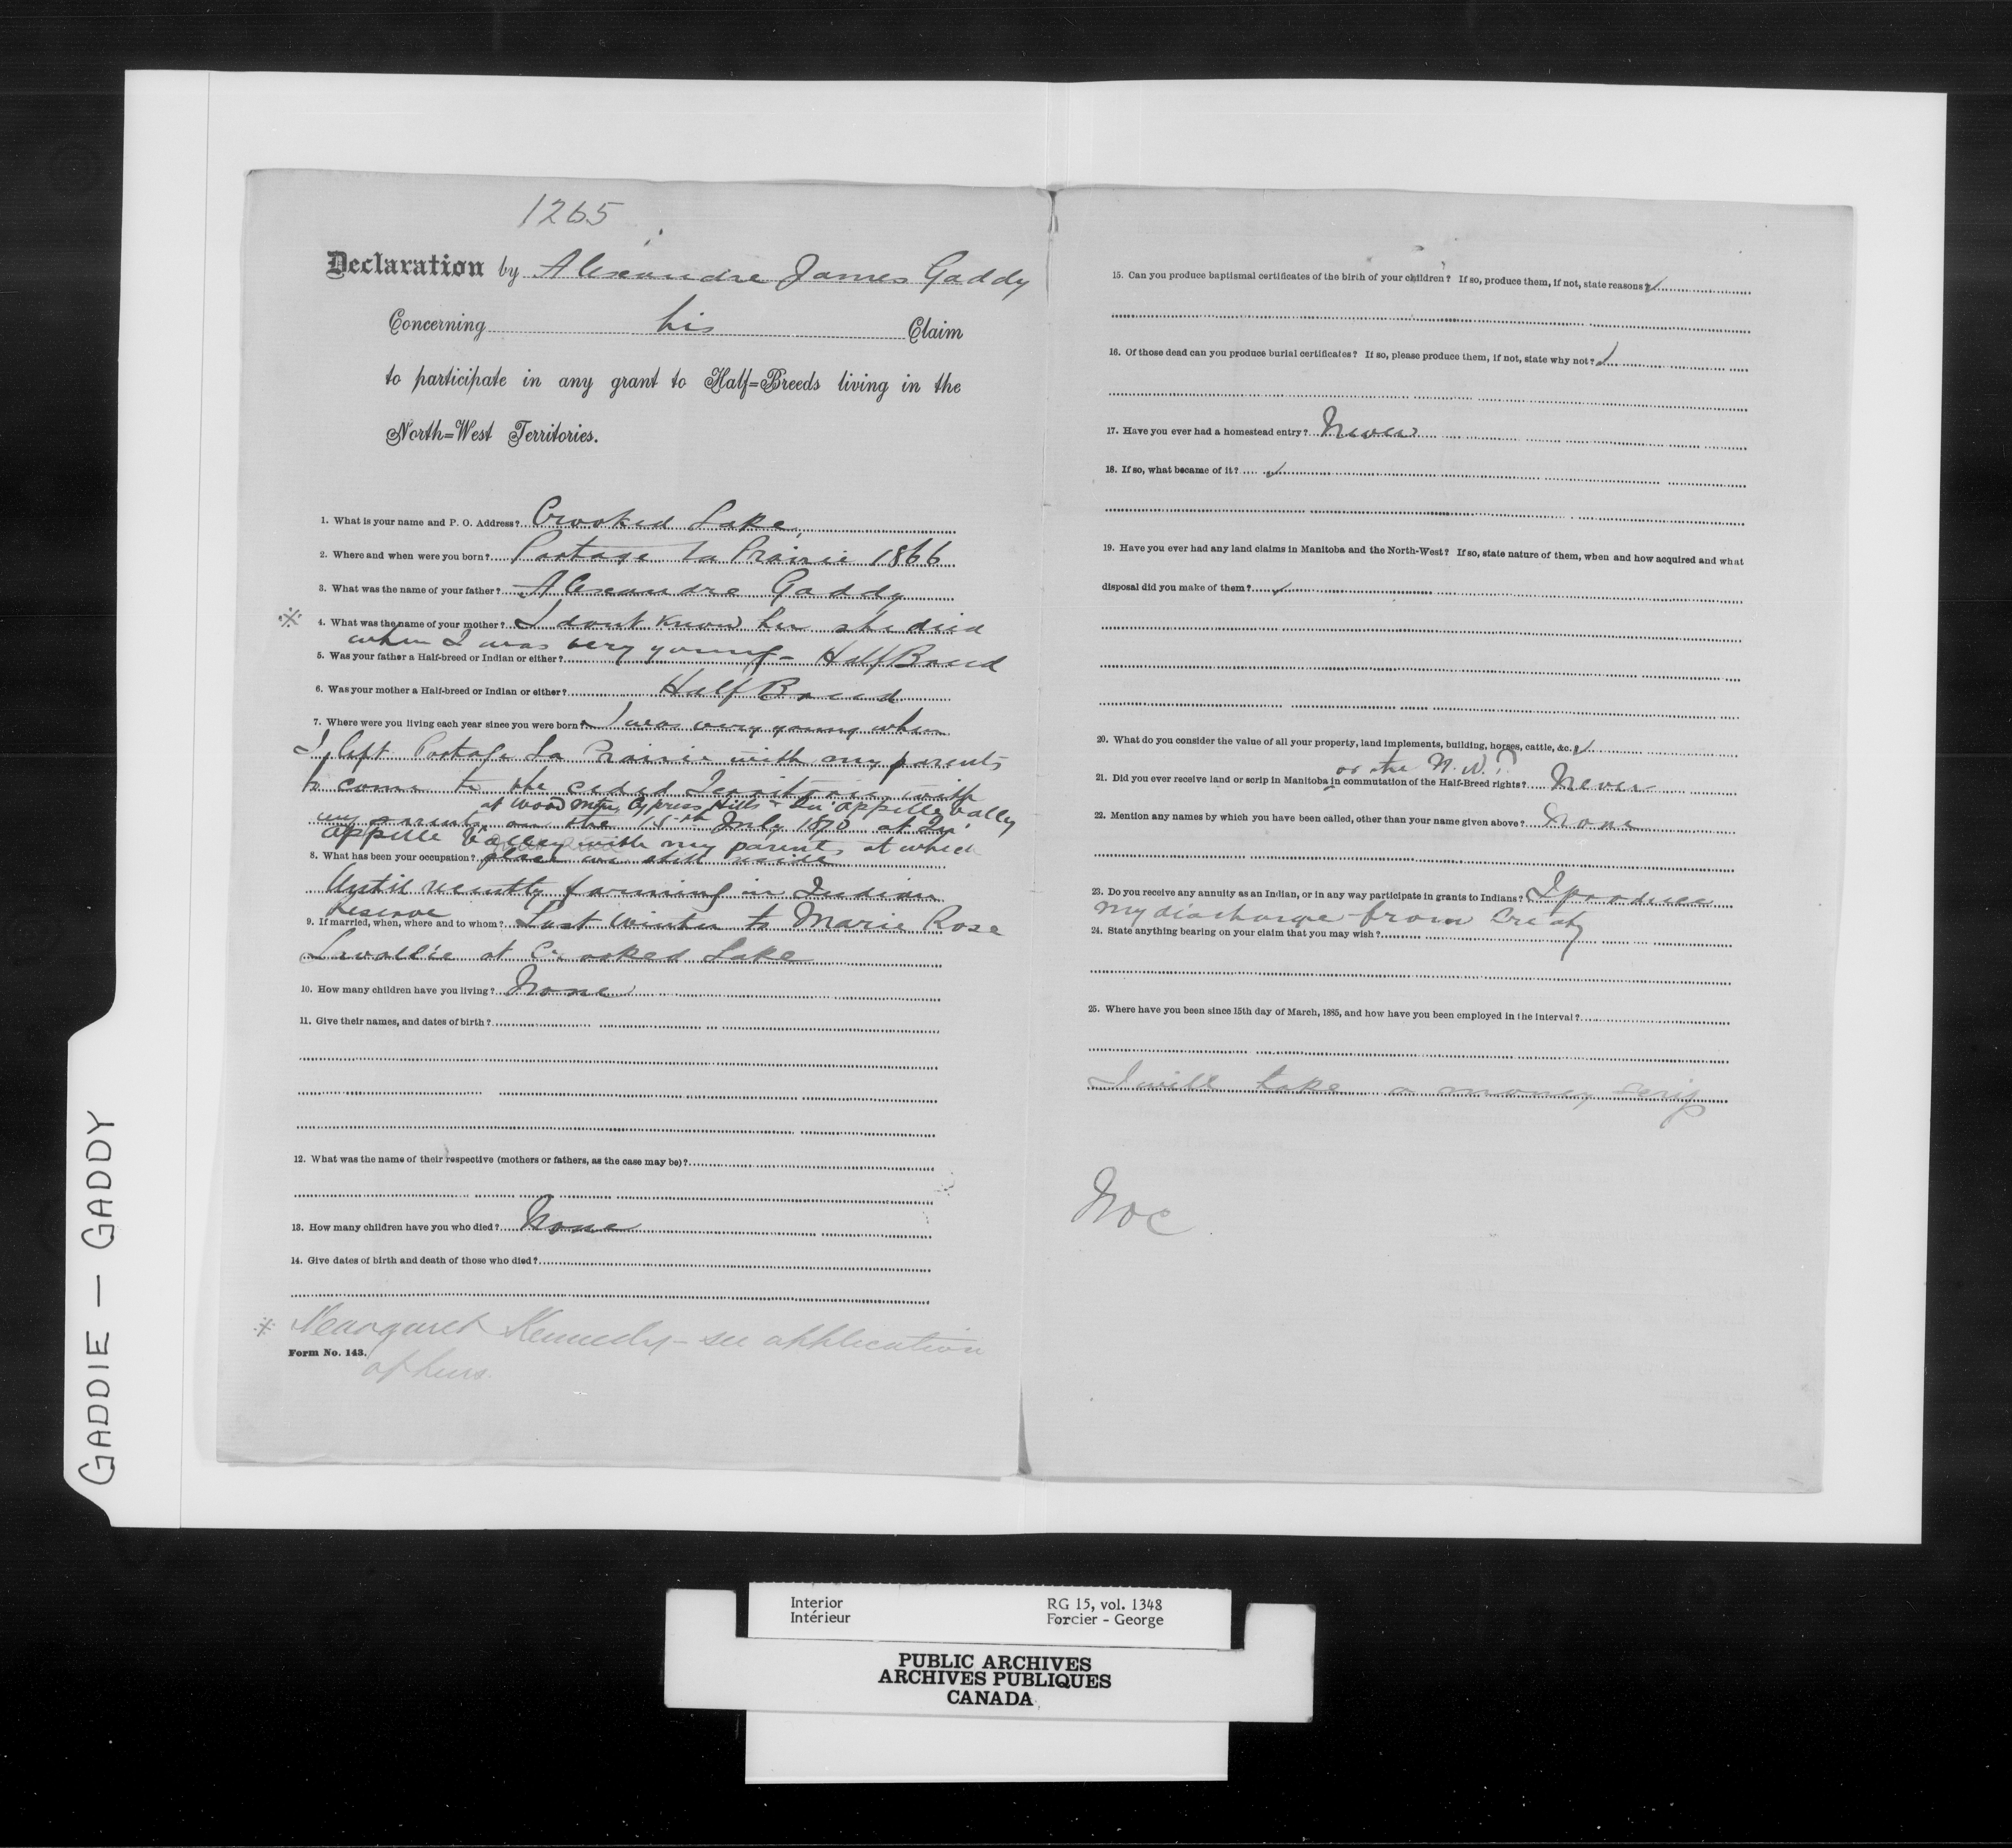 1265
Declaration by Alexandre James Gaddy
Concerning his Claim
to participate in any grant to Half=Breeds living in the
North=West Territories.
1. What is your name and P. O. Address? Crooked Lake
2. Where and when were you born? Portage la Prairie 1866
3. What was the name of your father? Alexandre Gaddy
※ 4. What was the name of your mother? I dont know her she died
when I was very young -
5. Was your father a Half-breed or Indian or either? Half Breed
6. Was your mother a Half-breed or Indian or either? Half Breed
7. Where were you living each year since you were born? I was very young when
I left Portage La Prairie with my parents
to come to the ceded Territories with
at Wood Mtn, Cypress Hills & Qu'appelle Valley
my parents on the 15th July 1870 at Qu'
appelle Valley with my parents at which
8. What has been your occupation? place we still reside
Until recently farming in Indian
Reserve
9. If married, when, where and to whom? Last winter to Marie Rose
Lavallée at Crooked Lake
10. How many children have you living? None
11. Give their names, and dates of birth?
12. What was the name of their respective (mothers or fathers, as the case may be)?
13. How many children have you who died? None
14. Give dates of birth and death of those who died?
※ Margaret Kennedy - see application
Form No. 143.
of hers.
15. Can you produce baptismal certificates of the birth of your children? If so, produce them, if not, state reasons?
16. Of those dead can you produce burial certificates? If so, please produce them, if not, state why not?
17. Have you ever had a homestead entry? Never
18. If so, what became of it?
19. Have you ever had any land claims in Manitoba and the North-West? If so, state nature of them, when and how acquired and what
disposal did you make of them?
20. What do you consider the value of all your property, land implements, building, horses, cattle, &c.?
or the N.W.?
21. Did you ever receive land or scrip in Manitoba in commutation of the Half-Breed rights? Never
22. Mention any names by which you have been called, other than your name given above? None
23. Do you receive any annuity as an Indian, or in any way participate in grants to Indians? I produce
my discharge from Treaty
24. State anything bearing on your claim that you may wish?
25. Where have you been since 15th day of March, 1885, and how have you been employed in the interval?
I will take a money scrip
GADDIE - GADDY
Interior RG 15, vol. 1348
Intérieur Forcier - George
PUBLIC ARCHIVES
ARCHIVES PUBLIQUES
CANADA